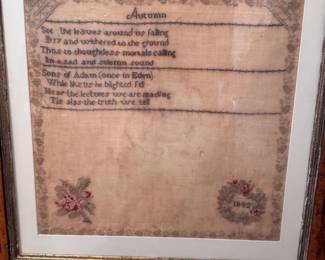 Autumn
See the leaves around us falling
Dry and withered to the ground
Thus to thoughtless mortals calling
In a sad and solemn sound
Sons of Adam (once in Eden)
While like us he blighted fell
Hear the lectures we are reading
Tis alas the truth we tell